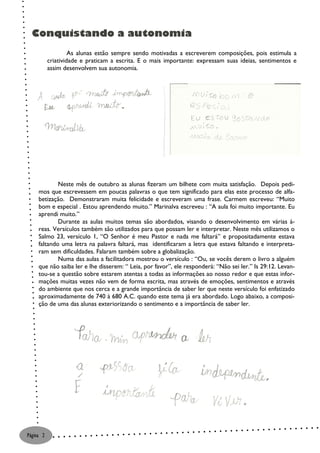 Conquistando a autonomia
As alunas estão sempre sendo motivadas a escreverem composições, pois estimula a
criatividade e praticam a escrita. E o mais importante: expressam suas ideias, sentimentos e
assim desenvolvem sua autonomia.
A aula foi muito importante
Eu aprendi muito.
Marinalia
muito bom e
especial
Eu estou gostando
muito.
Neste mês de outubro as alunas fizeram um bilhete com muita satisfação. Depois pedi-
mos que escrevessem em poucas palavras o que tem significado para elas este processo de alfa-
betização. Demonstraram muita felicidade e escreveram uma frase. Carmem escreveu: “Muito
bom e especial . Estou aprendendo muito.” Marinalva escreveu : “A aula foi muito importante. Eu
aprendi muito.”
Durante as aulas muitos temas são abordados, visando o desenvolvimento em várias á-
reas. Versículos também são utilizados para que possam ler e interpretar. Neste mês utilizamos o
Salmo 23, versículo 1, “O Senhor é meu Pastor e nada me faltará” e propositadamente estava
faltando uma letra na palavra faltará, mas identificaram a letra que estava faltando e interpreta-
ram sem dificuldades. Falaram também sobre a globalização.
Numa das aulas a facilitadora mostrou o versículo : “Ou, se vocês derem o livro a alguém
que não saiba ler e lhe disserem: “ Leis, por favor”, ele responderá: “Não sei ler.” Is 29:12. Levan-
tou-se a questão sobre estarem atentas a todas as informações ao nosso redor e que estas infor-
mações muitas vezes não vem de forma escrita, mas através de emoções, sentimentos e através
do ambiente que nos cerca e a grande importância de saber ler que neste versículo foi enfatizado
aproximadamente de 740 à 680 A.C. quando este tema já era abordado. Logo abaixo, a composi-
ção de uma das alunas exteriorizando o sentimento e a importância de saber ler.
Para . min aprender a ler
a passoa fica independente.
É inportante para viver.
Página 2